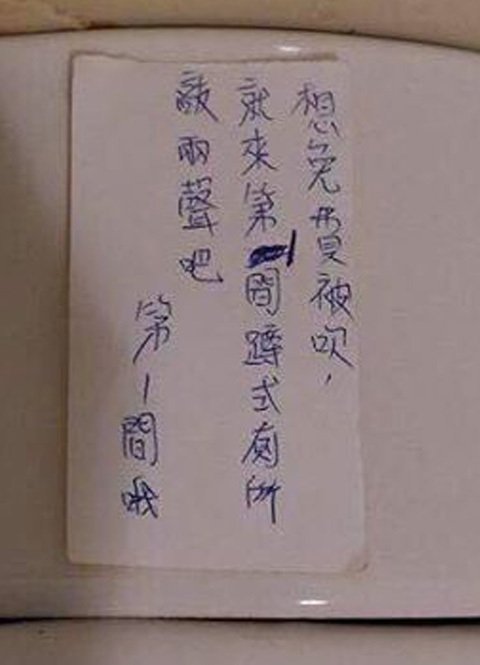 想免費被吹，
就來第1間蹲式廁所
敲兩聲吧
第1間哦